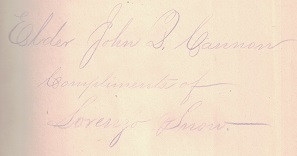 Elder John Q. Cannon
Compliments of
Lorenzo Snow.—